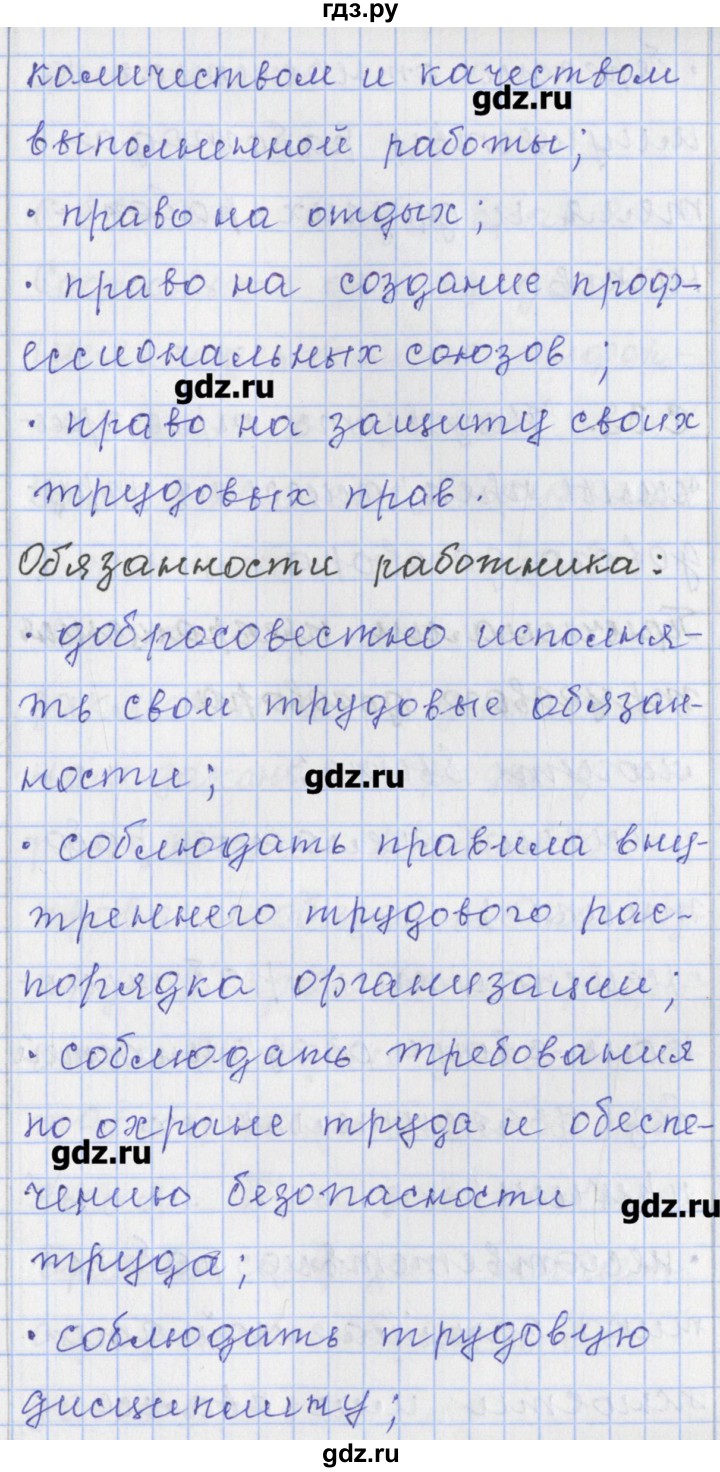 гдз.ру
количеством и качеством
gdz.ru
выполненной работы;
· право на отдых;
· право на создание проф-
ессиональных союзов;
gdz.ru
· право на защиту своих
трудовых прав.
Обязанности работника:
· добросовестно исполня-
ть свои трудовые обязан-
ности;
gdz.ru
· соблюдать правила вну-
треннего трудового рас-
порядка организации;
· соблюдать требования
по охране труда и обеспе-
gdz.ru
чению безопасности
gdz.ru
труда;
· соблюдать трудовую
дисциплину;
gdz.ru